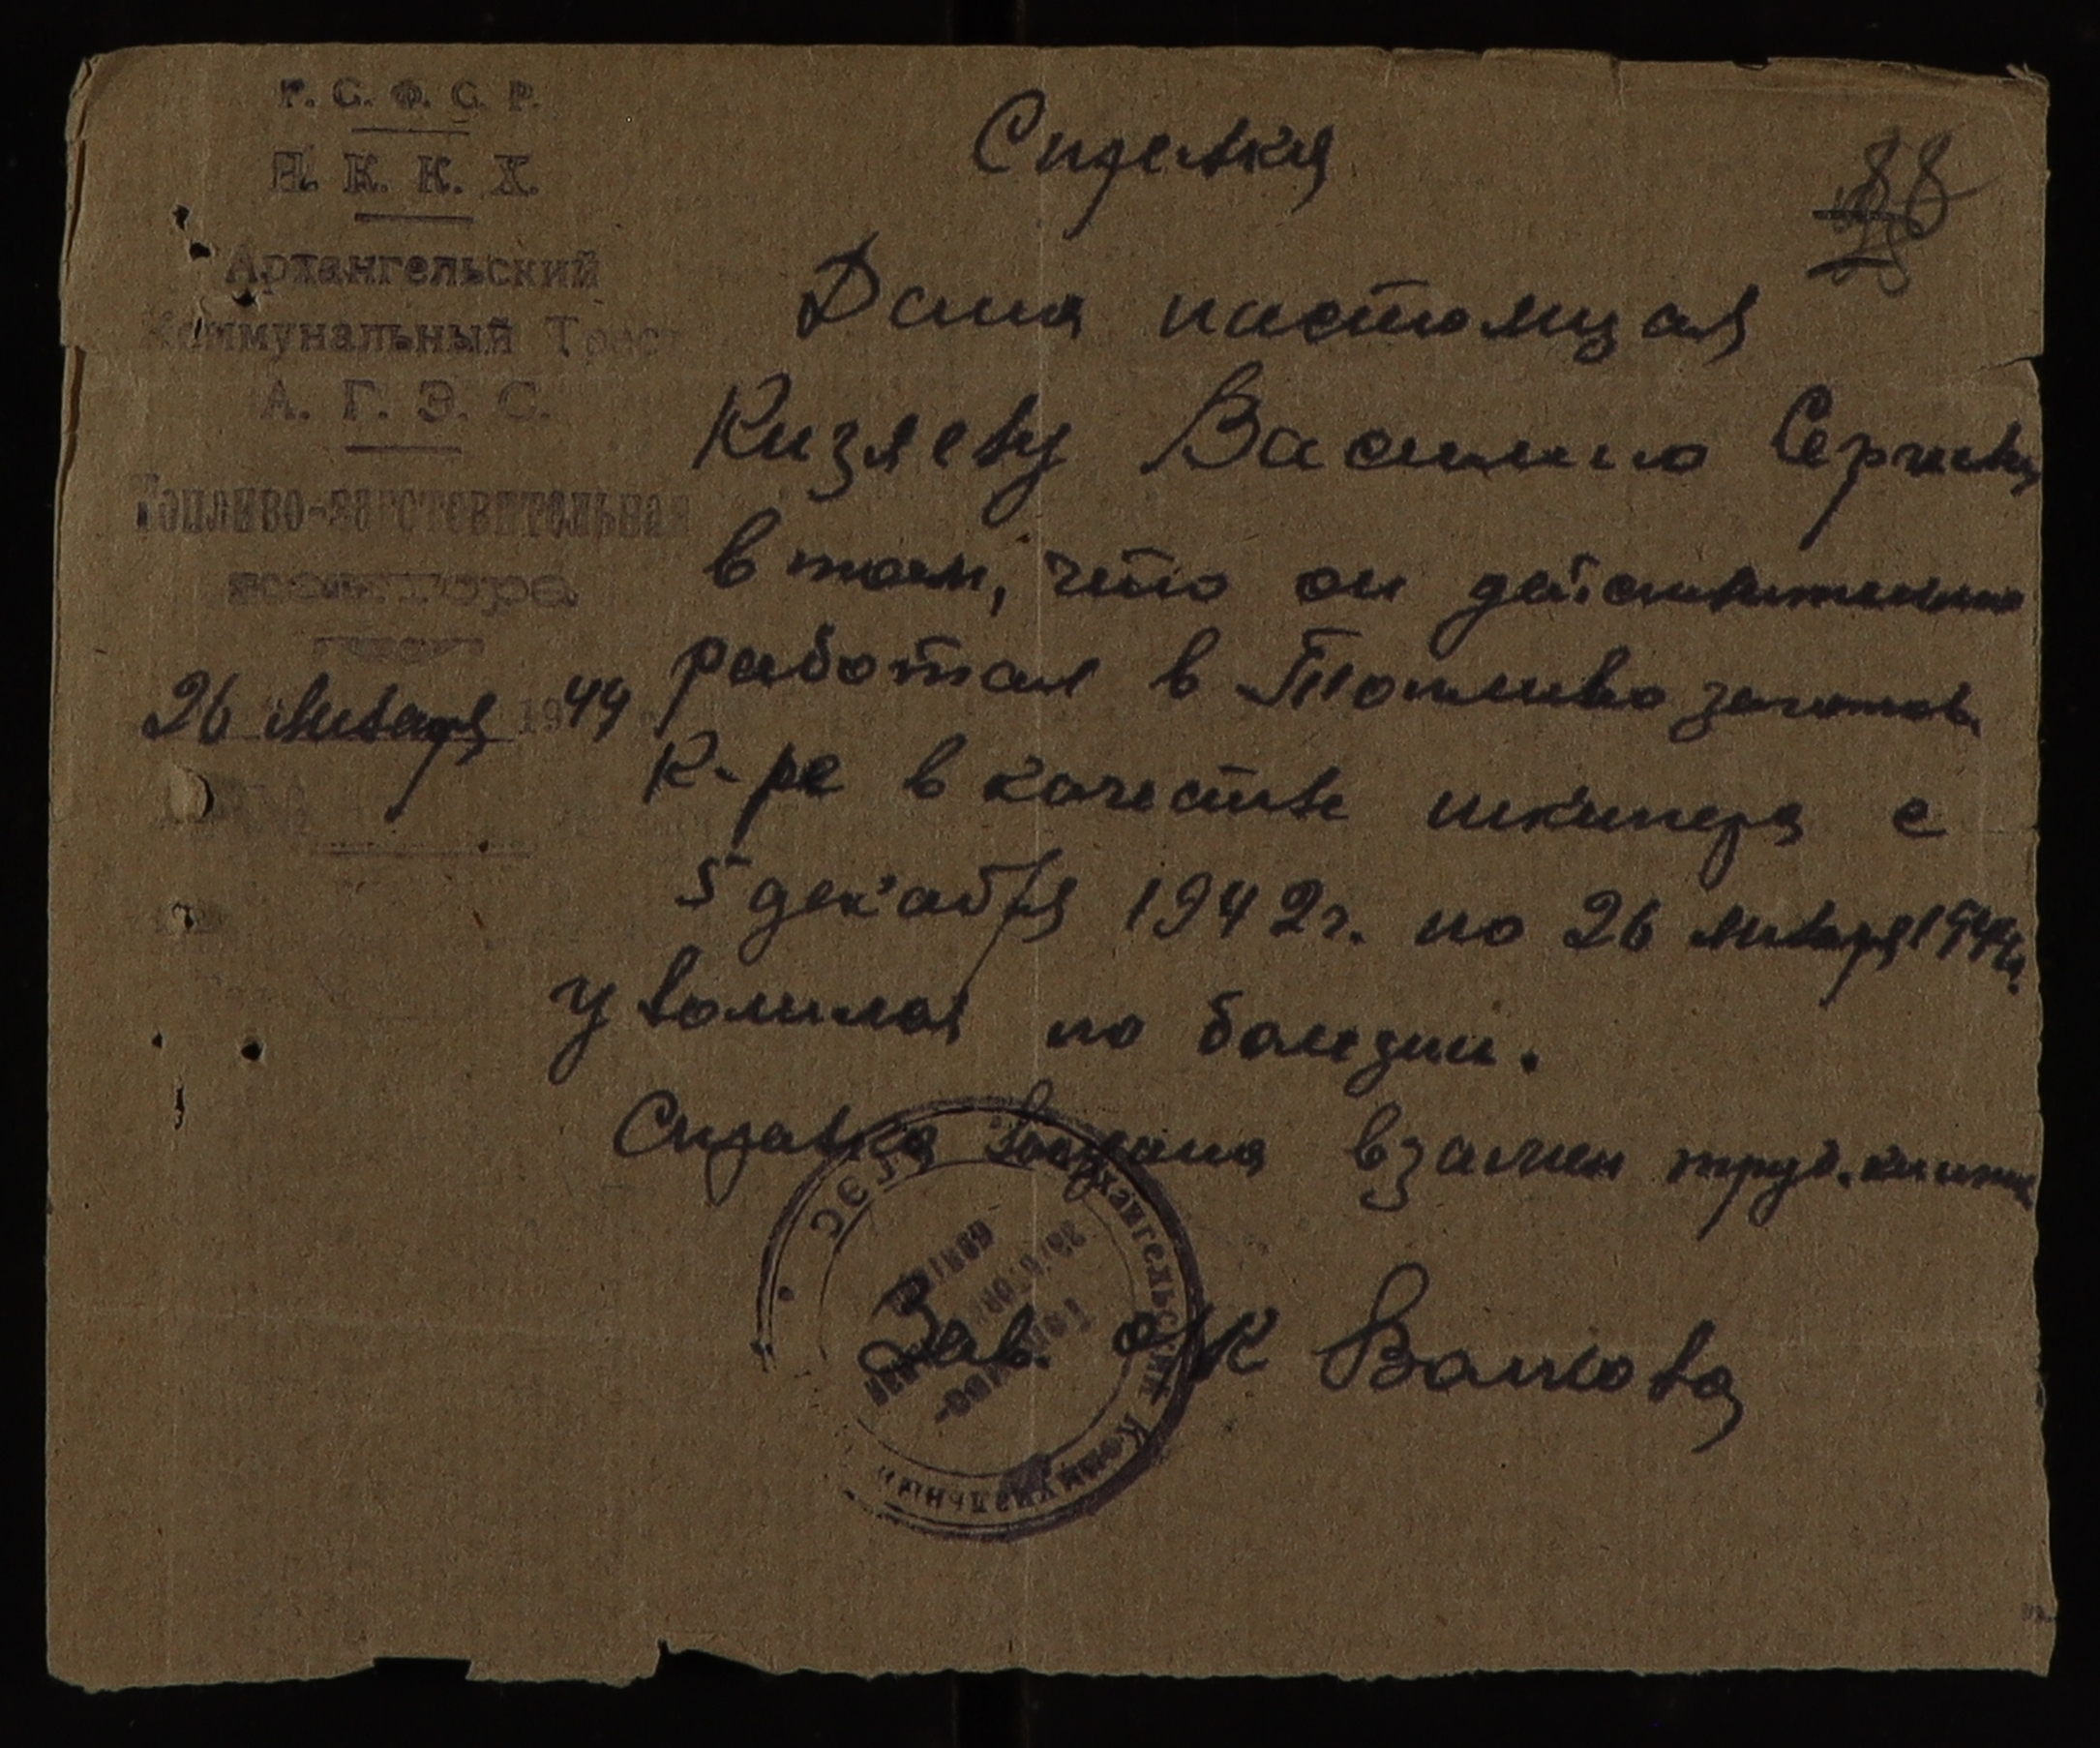 Р. С. Ф. С. Р.
Н. К. К. Х.
Архангельский
Коммунальный Трест
А. Г. Э. С.
Топливо-заготовительная
контора
26 января 1944
88
Справка
Дана настоящая
Кизяеву Василию Сергееву
в том, что он действительно
работал в Топливо заготов.
к-ре в качестве шкипера с
5 декабря 1942 г. по 26 января 1944 г.
уволился по болезни.
Справка выдана взамен труд. книжки
Зав. о/к Волкова
Архангельский Коммунальный
ГЭС